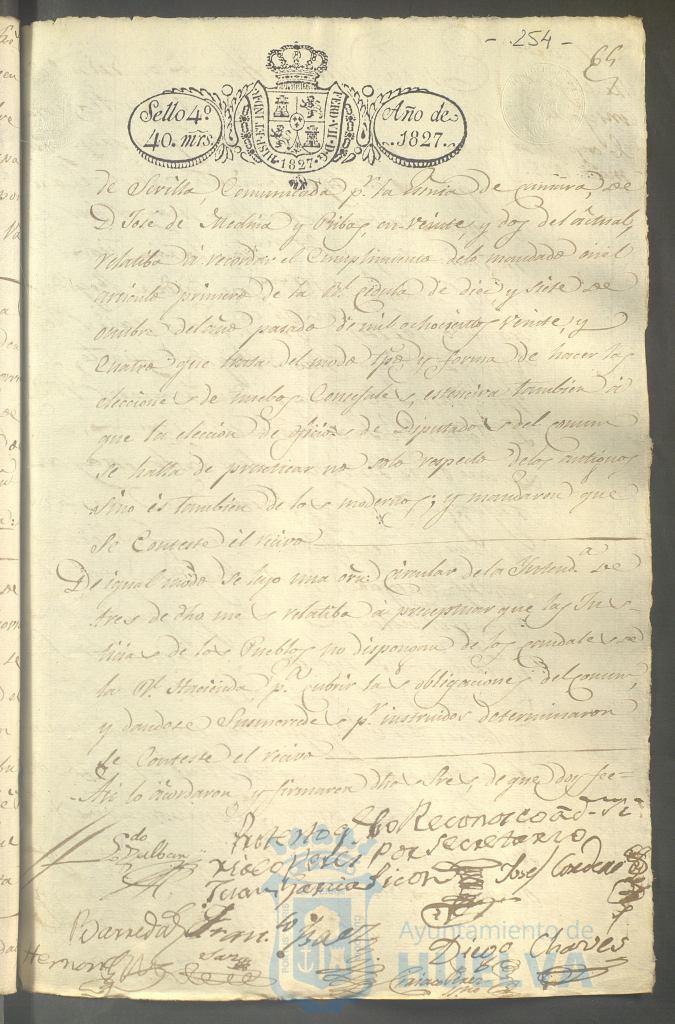 - 254 -
65
Sello 4º
40. mrs.
FERD. VII. D. G.
HISP. ET IND.
1827
Año de
1827.
de Sevilla, Comunicada pr. la misma de primera, de
D. José de Medina y Ribas, en veinte y dos del actual,
relatiba á recordar el Cumplimiento delo mandado en el
articulo primero de la Rl. Cedula de diez y siete de
octubre del año pasado de mil ochocientos veinte, y
Cuatro, que trata del modo tpo. y forma de hacer las
elecciones de nuebos Concejales, estensiva tambien á
que la elección de oficios de Diputados del comun
se halla de practicar no solo respecto delos antiguos
sino és tambien de los modernos; y mandaron que
Se Conteste el recivo
De igual modo se leyo una orn. circular dela Intenda. de
tres de dho mes relatiba á preceptuar que las Jus-
ticias de los Pueblos no dispongan de los caudales de
la Rl. Hacienda pa. cubrir las obligaciones del comun,
y dandose Susmercedes pr. instruidos determinaron
se Conteste el recivo
Asi lo acordaron y firmaron dhos Sres, de que doy fee=
Protexto q. no Reconosco á D.
Perez por Secretario
Juan Garcia Picon José Cordero
Barreda
Diego Chaves
Ayuntamiento de
HUELVA